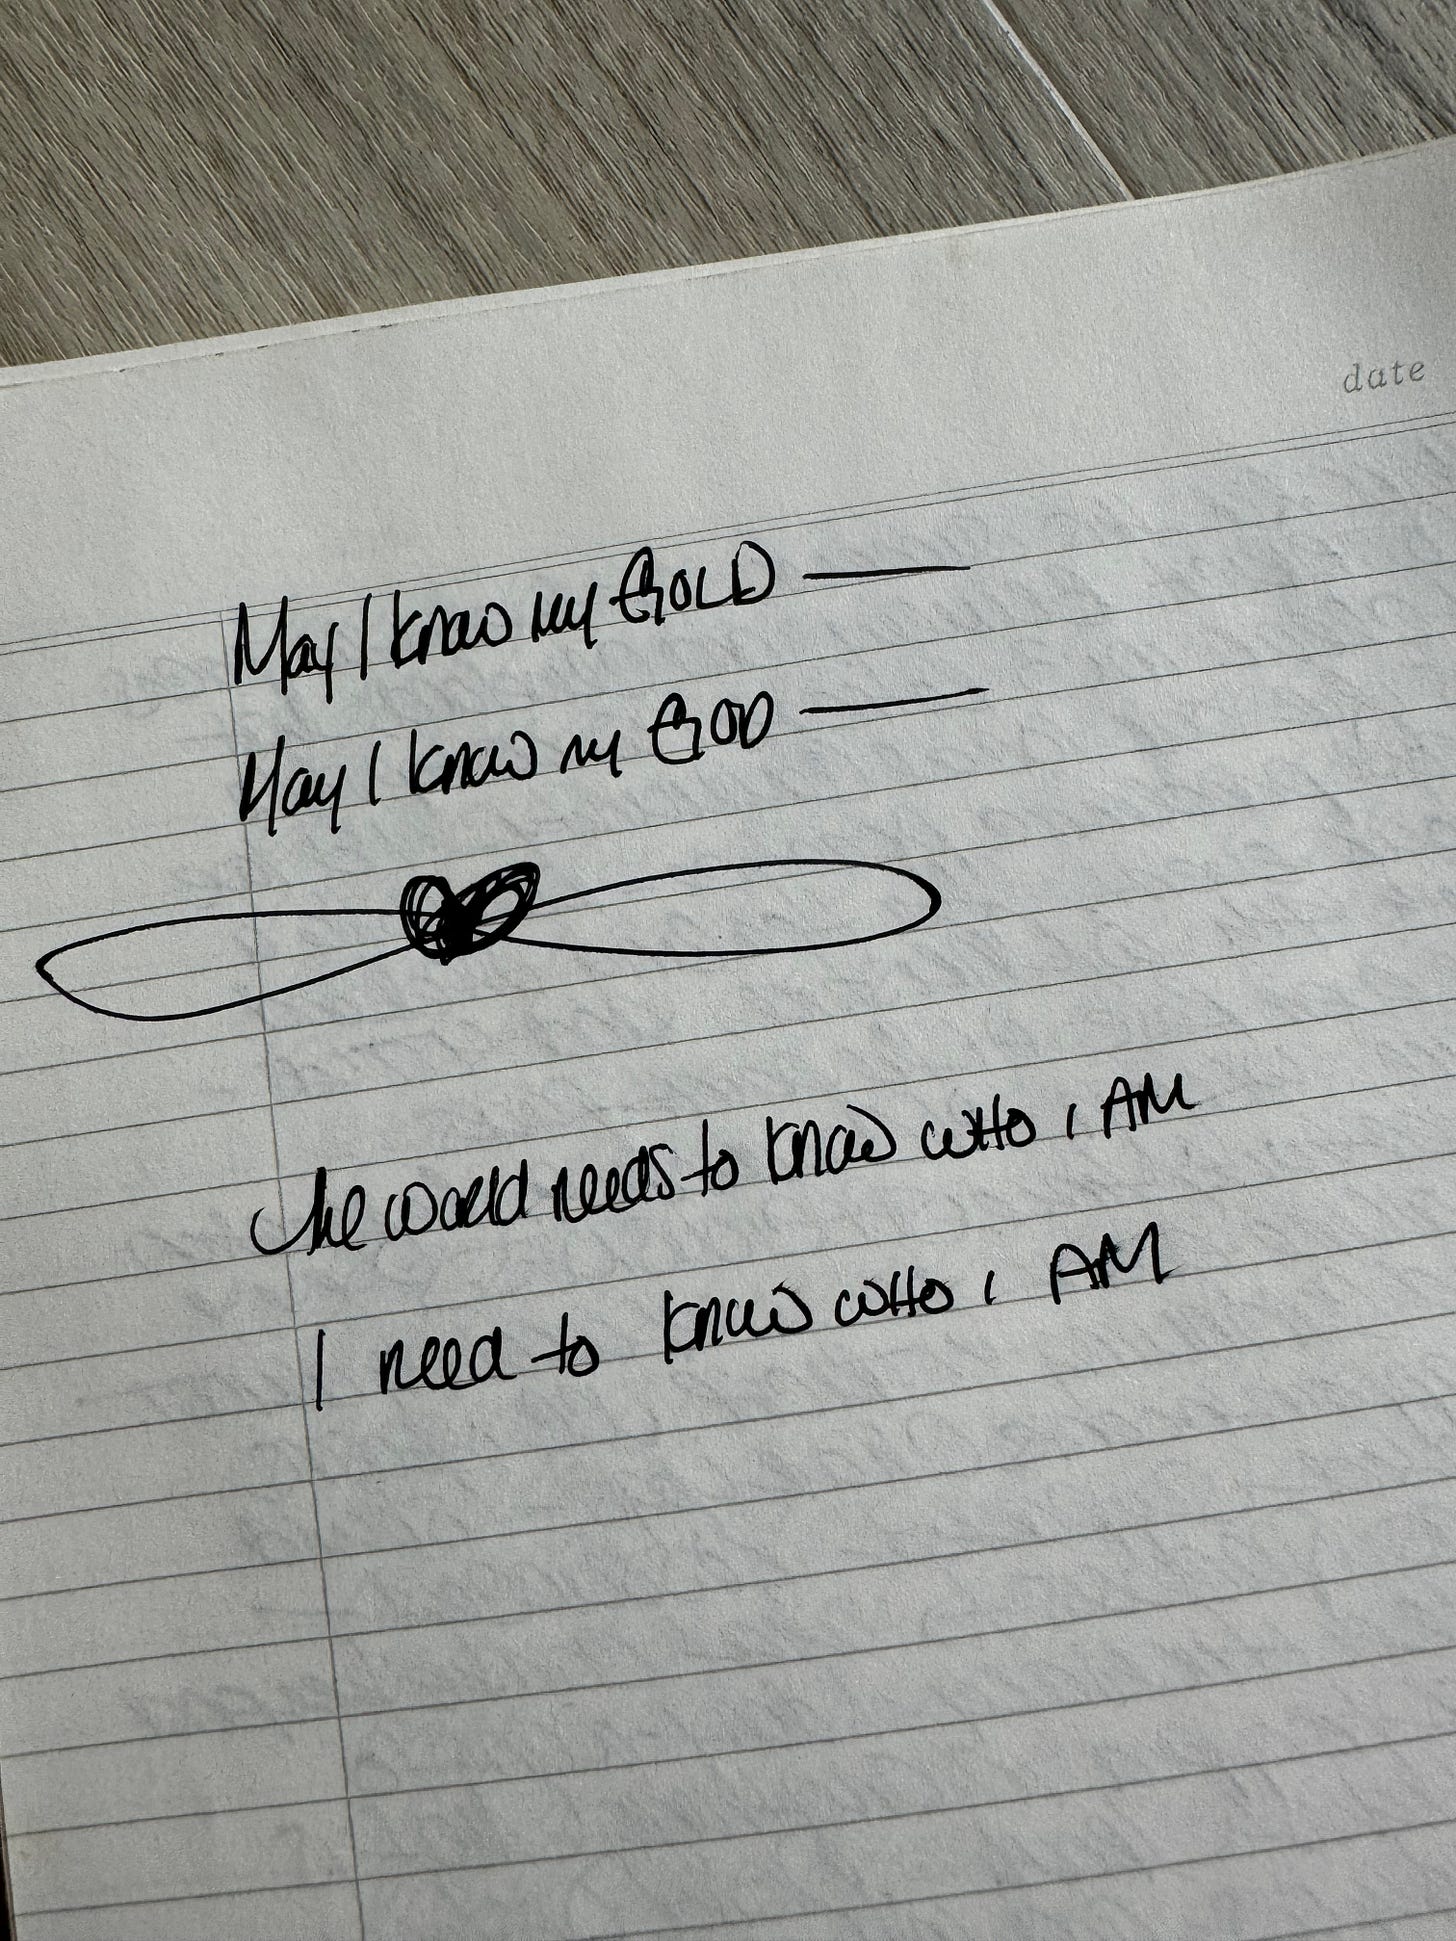 date
May I know my GOLD —
May I know my GOD —
The world needs to know WHO i AM
I need to know WHO i AM